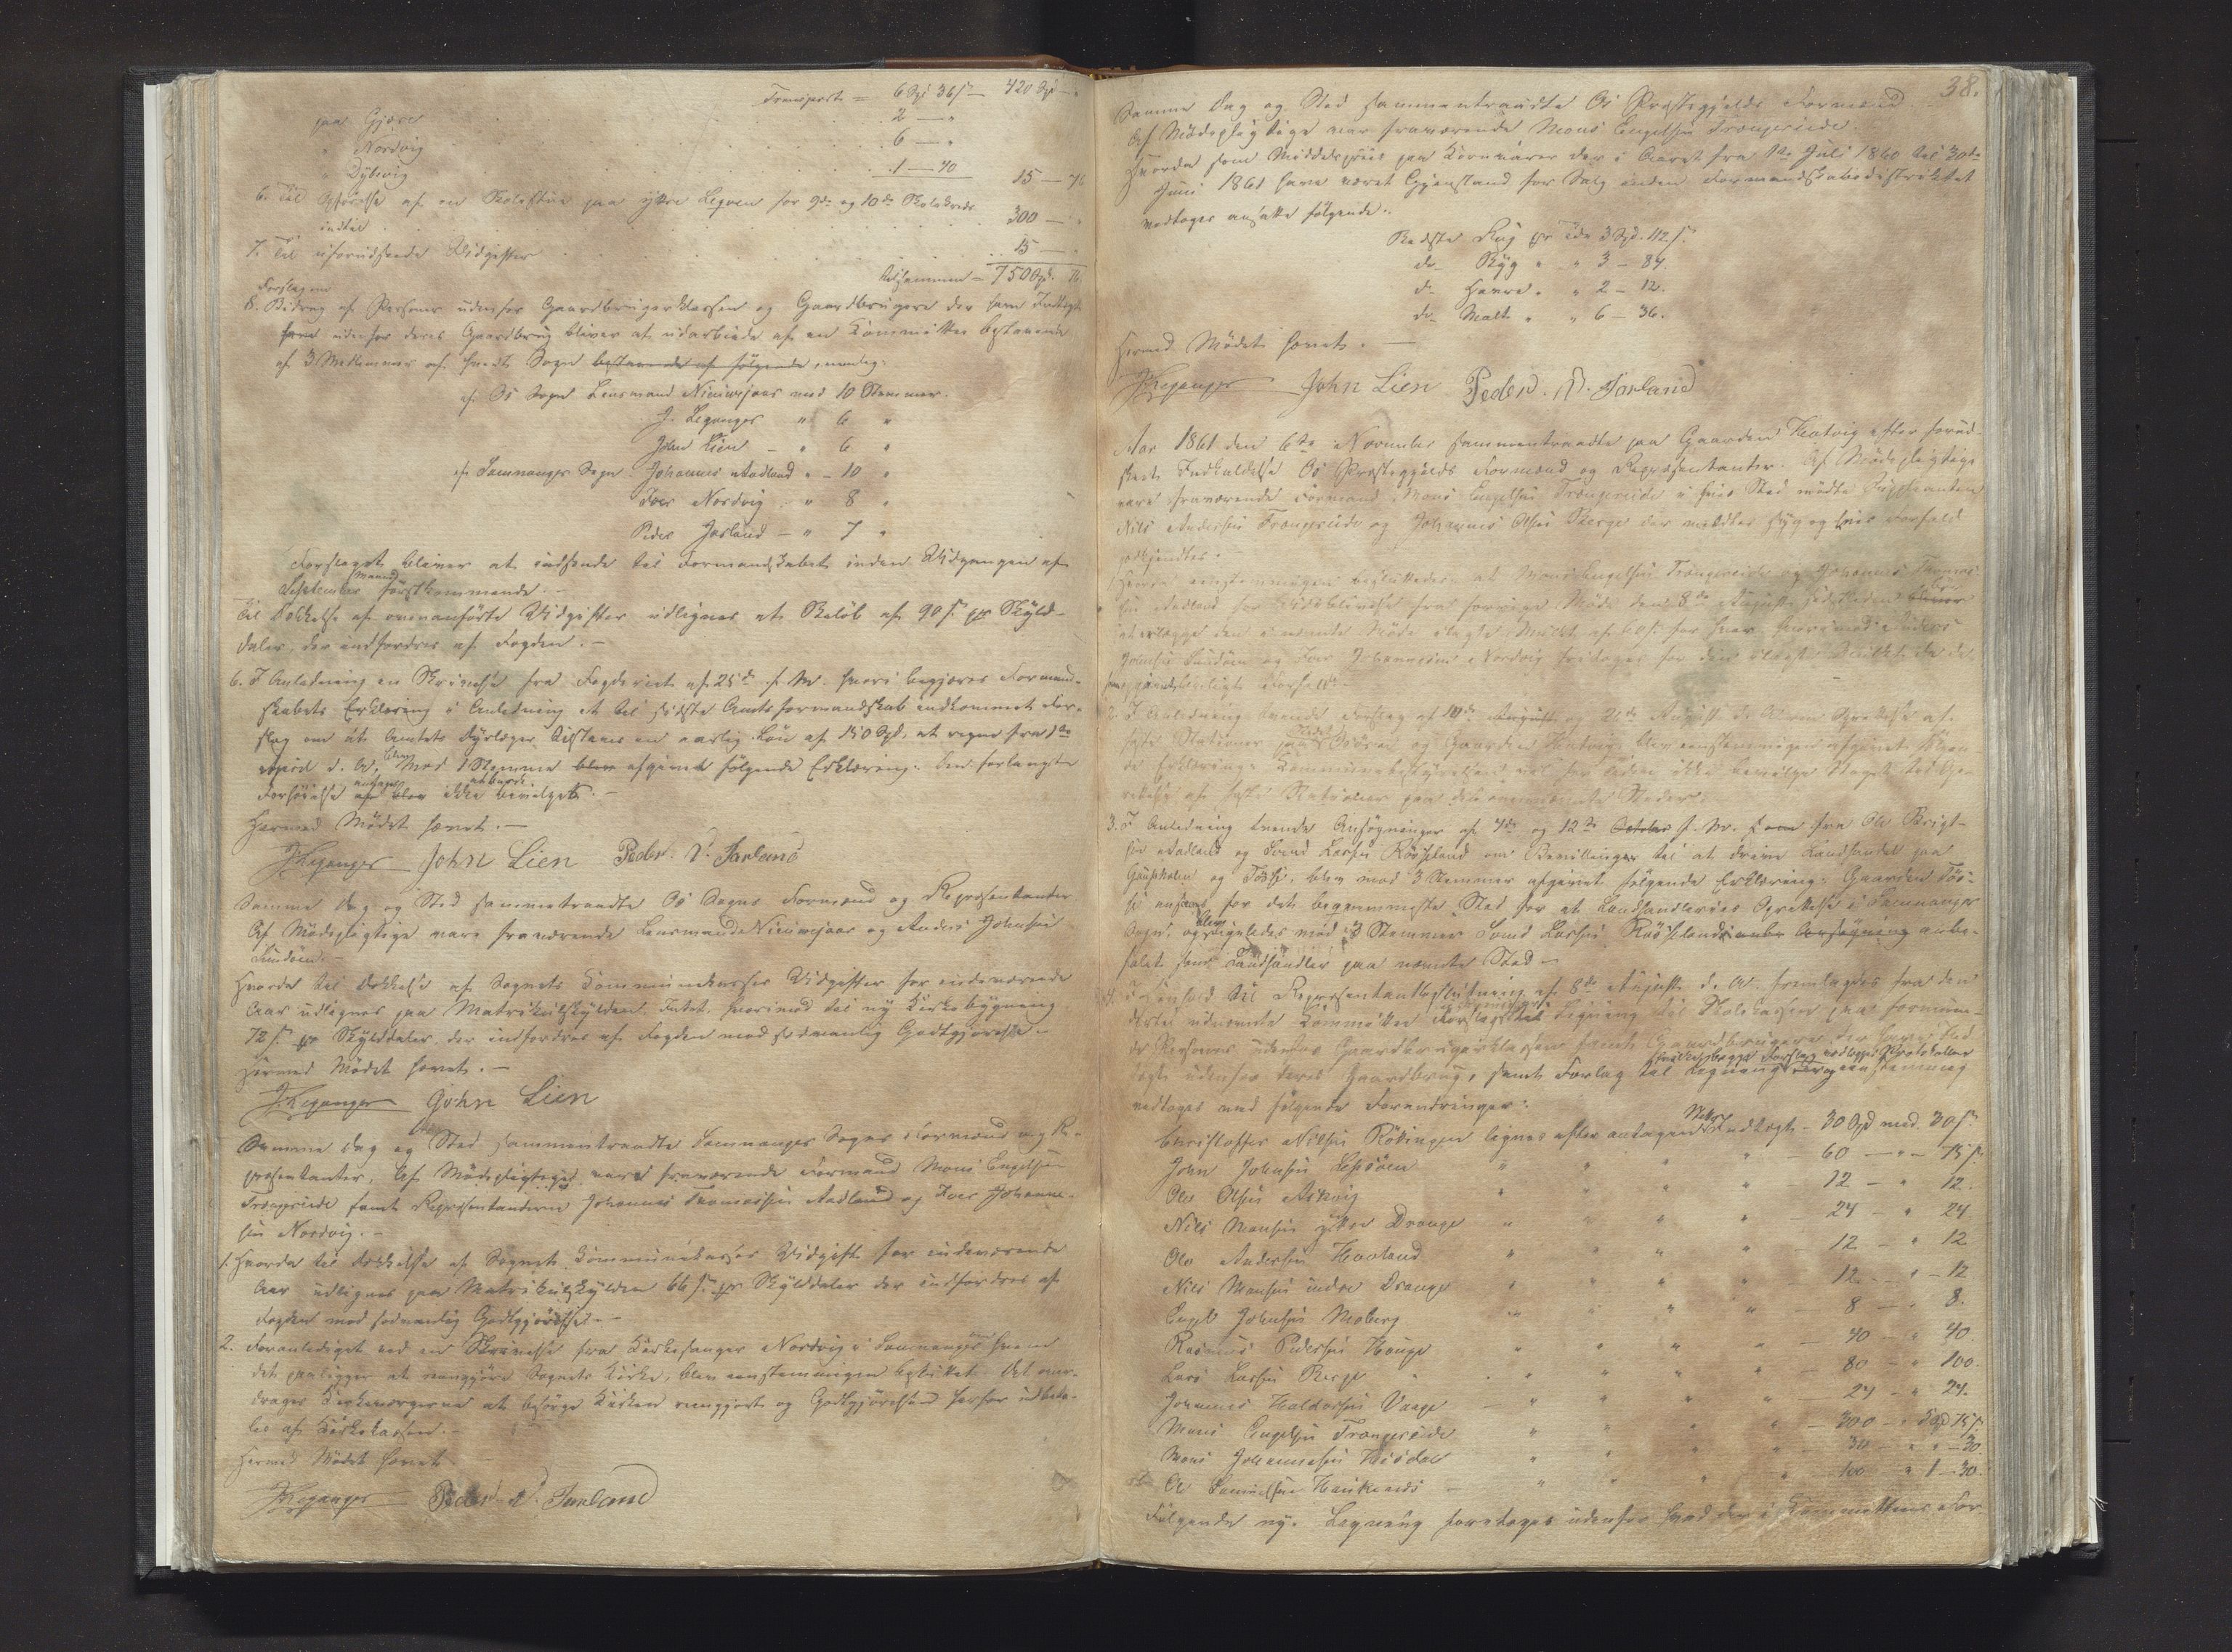 Transport = 6 Spd 36 s – 420 Spd – "
paa Gjøen . . . 2 – "
" Nordvig . . . 6 – "
" Dybvig . . . 1 – 40 15 – 76
6. Til Opførelse af en Skolestue paa ytre Leqven for 9de og 10de Skolekreds
indtil . . . 300 – "
7. Til uforudseede Udgifter . . . 15 – "
tilsammen = 750 Spd. 76
Forslag om
8. Bidrag af Personer udenfor Gaardbrugerklassen og Gaardbrugere der have Indtægt
have udenfor deres Gaardbrug bliver at udarbeide af en Kommitte bestaaende
af 3 Medlemmer af hvert Sogn bestaaende af følgende, nemlig:
af Os Sogn Lensmand Nieuwejaar med 10 Stemmer.
J. Leganger " 6 "
John Lien – " 6 "
af Samnanger Sogn Johannes Aadland " – 10 "
Iver Nordvig " 8 "
Peder Jarland – " 7 "
Forslaget bliver at indsende til Formandskabet inden Udgangen af
September Maaned førstkommende. –
Til Dækkelse af ovenanførte Udgifter udlignes et Beløb af 90 s pr Skyld-
daler, der indfordres af Fogden. –
6. I Anledning en Skrivelse fra Fogderiet af 25de f. M. hvori begjæres Formand-
skabets Erklæring i Anledning et til sidste Amtsformandskab indkommet For-
slag om at Amtets Dyrlæge tilstaaes en aarlig Løn af 150 Spd, at regne fra 1ste
April d. A., blev med 1 Stemme blev afgivet følgende Erklæring: Den forlangte
Forhøielse ansees af blev ikke at burde bevilges. –
Hermed Mødet hævet. –
J Leganger John Lien Peder. N. Jarland
Samme Dag og Sted sammentraadte Os Sogns Formænd og Repræsentanter
Af Mødepligtige vare fraværende Lensmand Nieuwejaar og Anders Johnsen
Lundøen. –
Hvorda til Dækkelse af Sognets Kommunekasses Udgifter for indeværende
Aar udlignes paa Matrikulskylden Intet, hvorimod til ny Kirkebygning
72 s pr Skylddaler, der indfordres af Fogden med sedvanlig Godtgjørelse. –
Hermed Mødet hævet. –
J. Leganger John Lien
Samme Dag og Sted sammentraadte Samnanger Sogns Formænd og Re-
præsentanter. Af Mødepligtige vare fraværende Formand Mons Engelsen
Trængereide samt Repræsentanterne Johannes Thomassen Aadland og Iver Johanne-
sen Nordvig. –
1. Hvorda til Dækkelse af Sognets Kommunekasses Udgift for indeværende
Aar udlignes paa Matrikulskylden 66 s pr Skylddaler der indfordres af
Fogden med sedvanlig Godtgjørelse. –
2. Foranlediget ved en Skrivelse fra Kirkesanger Nordvig i Samnanger om hvem
det paaligger at rengjøre Sognets Kirke, blev eenstemmigen besluttet: Det over-
drages Kirkeværgerne at besørge Kirken rengjort og Godtgjørelsen herfor udbeta-
les af Kirkekassen. –
Hermed Mødet hævet
J Leganger Peder N. Jarland
38.
Samme Dag og Sted sammentraadte Os Præstegjelds Formænd.
Af Mødepligtige var fraværende Mons Engelsen Trængereide.
Hvorda som Middelpriis paa Kornvarer der i Aaret fra 1ste Juli 1860 til 30te
Juni 1861 have været Gjenstand for Salg inden Formandskabsdistriktet
vedtoges ansatte følgende:
Bedste Rug pr Tde 3 Spd. 112 s.
do Byg " " 3 – 84.
do Havre " " 2 – 12.
do Malt " " 6 – 36.
Hermed Mødet hævet. –
J Leganger John Lien Peder. N. Jarland
Aar 1861 den 6te November sammentraadte paa Gaarden Hatvig efter forud-
skeet Indkaldelse Os Præstegjelds Formænd og Repræsentanter. Af Mødepligtige
vare fraværende Formand Mons Engelsen Trængereide i hvis Sted mødte Suppleanten
Nils Andersen Trængereide og Johannes Olsen Berge der meldtes syg og hvis Forfald
godkjendtes. –
Hvorda eenstemmigen besluttedes at Mons Engelsen Trængereide og Johannes Thomas-
sen Aadland for Udeblivelse fra forrige Møde den 8de August
at erlægge den i nævnte Møde ilagte Mulkt af 60 s for hver, hvorimod Anders
Johnsen Lundøen og Iver Johannesen Nordvig fritages for den ilagte Mulkt da de
have lovligt Forfald. –
2. I Anledning tvende Forslag af 10de August og 21de August d. A. om Oprettelse af
faste Stationer paa Osøren og Gaarden Hatvig, blev eenstemmigen afgivet saaly-
de Erklæring: Kommunebestyrelsen vil for Tiden ikke bevilge Noget til Op-
rettelse af faste Stationer paa de ovennævnte Steder.
3. I Anledning tvende Ansøgninger af 4de og 12te October f. M. fra Ole Brigt-
sen Aadland og Svend Larsen Røseland om Bevillinger til at drive Landhandel paa
Gaupholm og Tøsse, blev med 3 Stemmer afgivet følgende Erklæring: Gaarden Tøs-
se ansees for det beqvemmeste Sted for et Landhandleries Oprettelse i Samnanger
Sogn, og blev ligeledes med 3 Stemmer Svend Larsen Røseland anbe-
falet som Landhandler paa nævnte Sted –
4. I Henhold til Repræsentantbeslutning af 8de August d. A. fremlagdes fra den
dertil udnævnte Kommitte Forslag til Ligning til Skolekassen paa formuen-
de Personer udenfor Gaardbrugerklassen samt Gaardbrugere der have Ind-
tægt udenfor deres Gaardbrug, samt Forslag til Ligning eenstemmig
hvilke begge Forslag vedlægges Protokollen
vedtoges med følgende Forandringer:
Christoffer Nilsen Røtingen lignes efter antagen Netto Indtægt – 30 Spd med 30 s.
John Johnsen Lepsøen " " " " – 60 – " – 75 s
Ole Olsen Askvig " " " " – 12 – " 12.
Nils Monsen ytre Drange " " " " – 24 – " 24
Ole Andersen Haaland " " " " – 12 – " 12
Nils Monsen indre Drange " " " " – 12 – " – 12
Engel Johnsen Moberg " " " " – 8 – " 8.
Rasmus Pedersen Hauge " " " " – 40 – " 40.
Lars Larsen Berge " " " " – 80 – " 100.
Johannes Haldorsen Vaage – " " " " – 24 – " 24.
Mons Engelsen Trængereide " " " " – 300 – " 5 Spd 75 s.
Mons Johannessen Hisdal " " " " – 30 – " " – 30.
Ole Samuelsen Haukenæs – " " " " – 100 – " 1 – 30.
Følgende ny Ligning foretages udenfor hvad der i Kommitteens For-